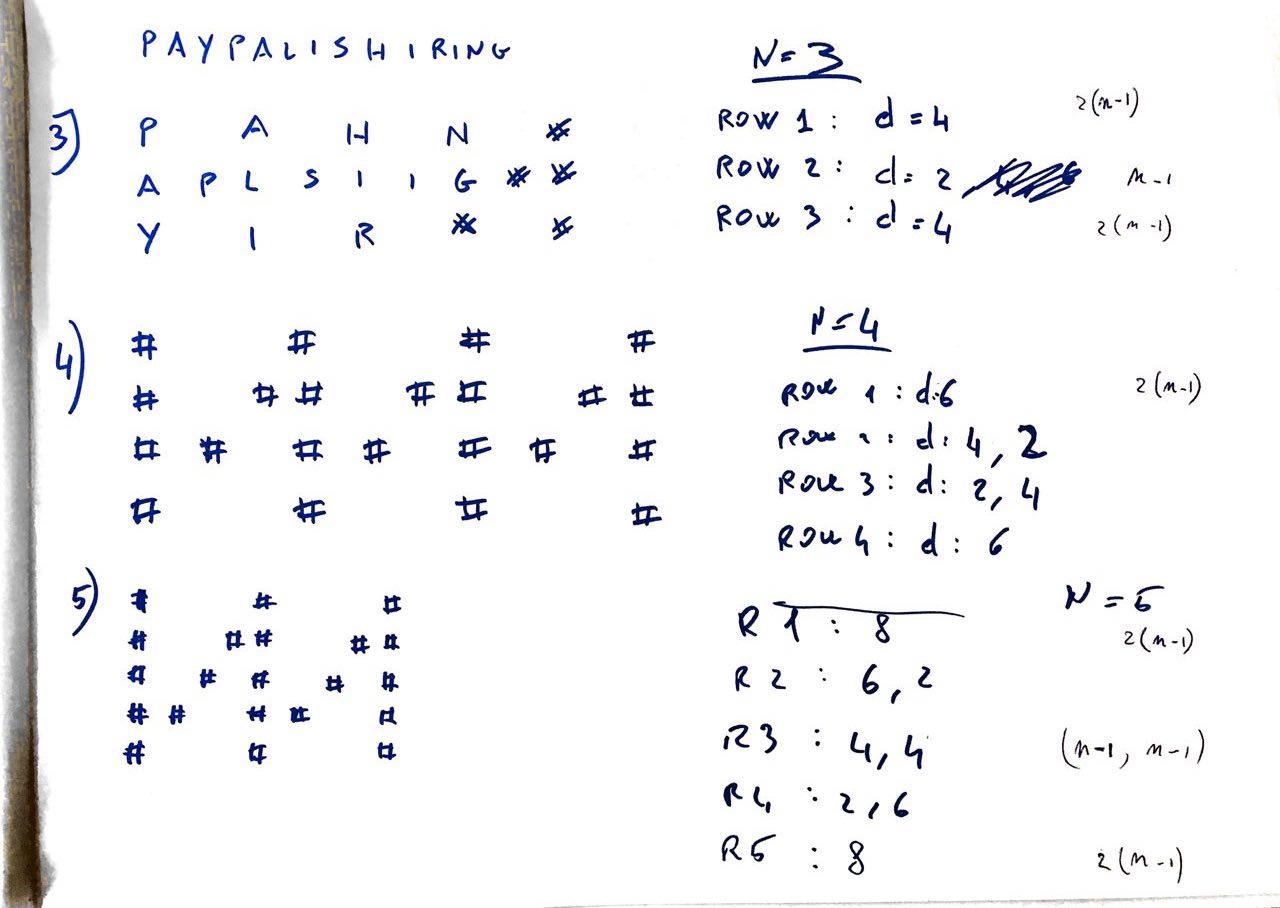 PAYPALISHIRING
3)
P A H N #
A P L S I I G # #
Y I R # #
N=3
ROW 1 : d=4 2(n-1)
ROW 2 : d=2 n-1
ROW 3 : d=4 2(n-1)
4)
# # # #
# # # # # # #
# # # # # # #
# # # #
N=4
ROW 1 : d:6 2(n-1)
ROW 2 : d: 4, 2
ROW 3 : d: 2, 4
ROW 4 : d: 6
5)
# # #
# # # # #
# # # # #
# # # # #
# # #
N=5
R1 : 8 2(n-1)
R2 : 6, 2
R3 : 4, 4 (n-1, n-1)
R4 : 2, 6
R5 : 8 2(n-1)